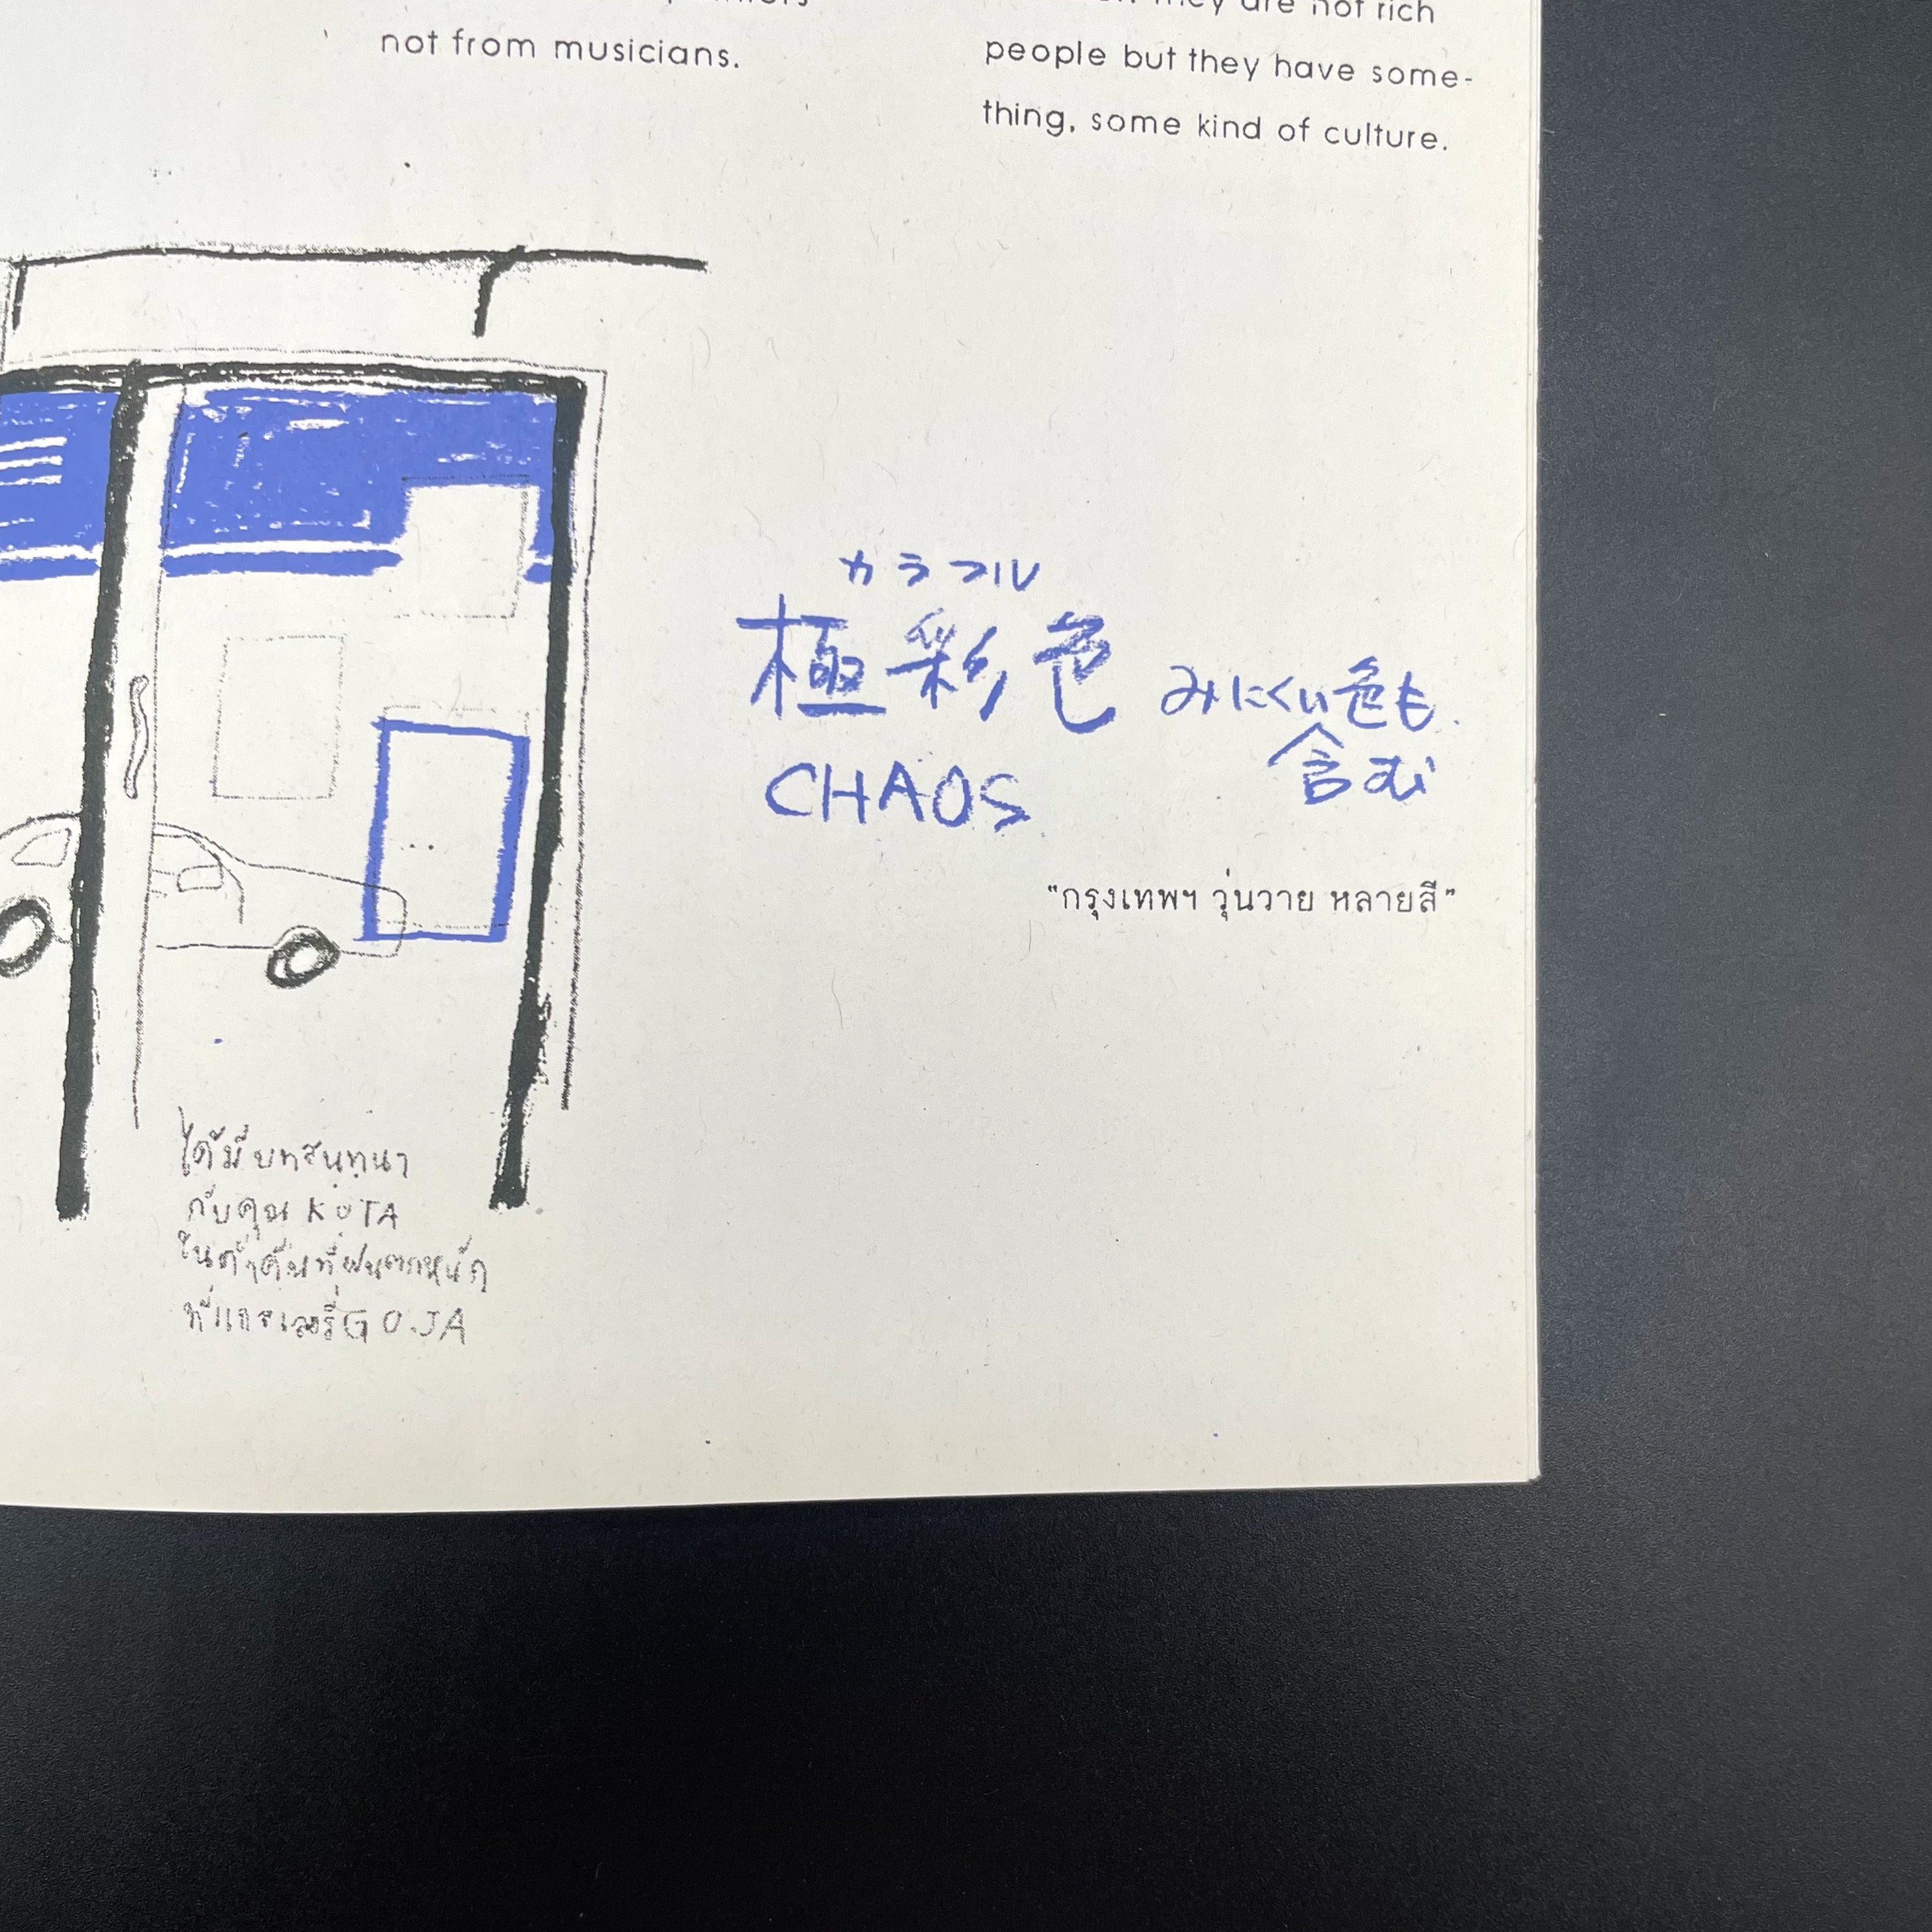 not from musicians.
they are not rich
people but they have some-
thing, some kind of culture.
カラフル
極彩色 みにくい色も
含む
CHAOS
"กรุงเทพฯ วุ่นวาย หลายสี"
ได้มีบทสนทนา
กับคุณ KOTA
ในค่ำคืนที่ฝนตกหนัก
ที่แกลเลอรี่ GOJA